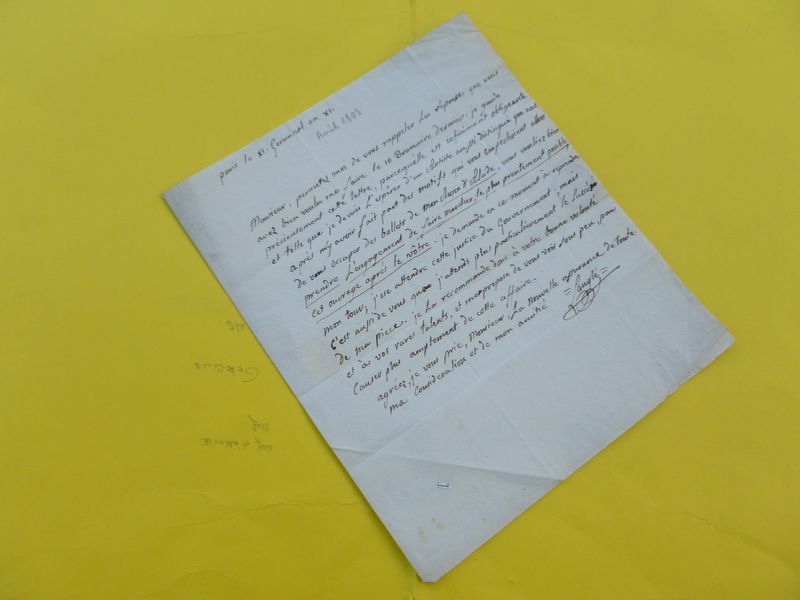 paris le XI. Germinal an XI.
Avril 1803
Monsieur, permettez moi de vous rappeler La réponse que vous
avez bien voulu me faire le 10 Brumaire dernier. je garde
précieusement cette lettre, parcequ'elle est infiniment obligeante
et telle que je devois L'espérer d'un Artiste aussi distingué que vous.
après m'y avoir fait part des motifs qui vous empêchoient alors
de vous occuper des ballets de mon choeur d', vous voulez bien
prendre L'engagement de faire marcher, le plus promtement possible,
cet ouvrage après le vôtre. je demande en ce moment à reprendre
mon tour; j'ose attendre cette justice du Gouvernement, mais
C'est aussi de vous que j'attends plus particulièrement le Succès
de ma piece. je La recommande donc à votre bonne volonté
et à vos rares talents, et me propose de vous voir sous peu, pour
Causer plus amplement de cette affaire.
agréez, je vous prie, Monsieur, La nouvelle assurance de toute
ma Considération et de mon amitié
= Langlé =